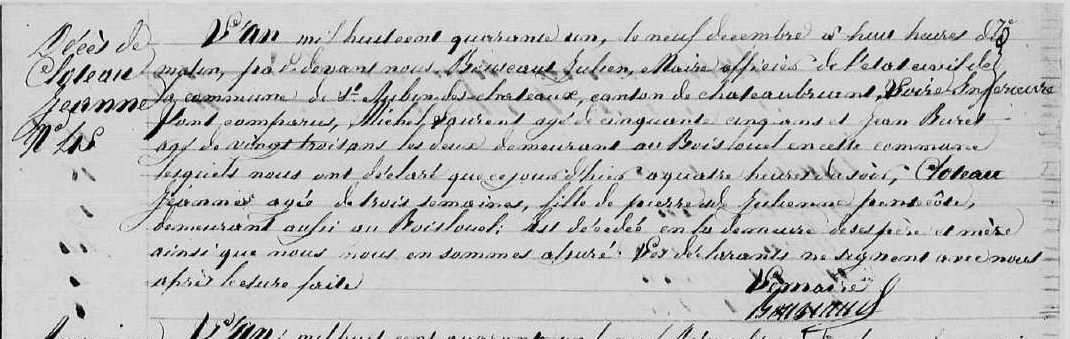 Décès de
Cloteau
Jeanne
N° 45
L'An mil huit cent quarante un, le neuf decembre a huit heures du
matin, par devant nous Julien, Maire officier de l'etat civil de
la commune de St Aubin-des-chateaux, canton de chateaubriant, Loire Inférieure
sont comparus, Michel Laurent agé de cinquante cinq ans et Jean Buret
agé de vingt trois ans les deux demeurant au Boislouel en cette commune
lesquels nous ont déclaré que ce jour d'hier a quatre heures du soir, Cloteau
Jeanne agée de trois semaines, fille de pierre et de Julienne pentecôte,
demeurant aussi au Boislouel; Est décédée en la demeure de ses père et mère
ainsi que nous nous en sommes assuré. Les déclarants ne signent avec nous
après lecture faite
Le maire
L'An mil huit cent quarante un le neuf